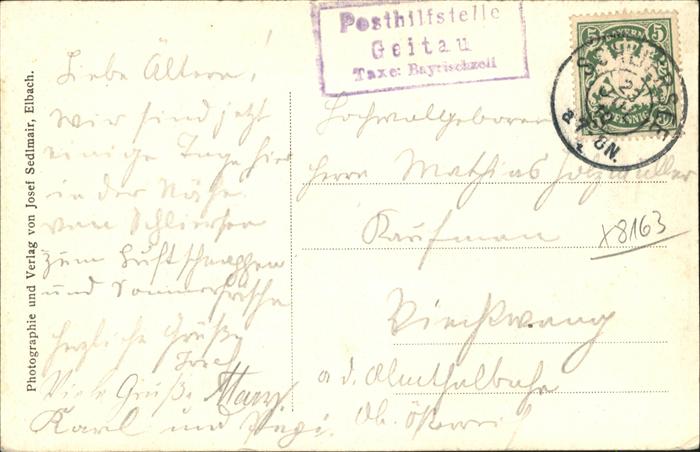 Photographie und Verlag von Josef Sedlmair, Elbach.
Liebe Ältern!
Wir sind jetzt
einige Tage hier
in der Nähe
vom Schliersee
zum Luftschnappen
und Sommerfrische
herzliche Grüße
Viele Grüße Mary
Karl und
Posthilfstelle
Geitau
Taxe: Bayrischzell
5 BAYERN 5
PFENNIG
SCHLIERSEE
Hochwolgeboren
Herrn Mathias Holzmüller
Kaufman
x8163
Vieckwang
a d. Almthalbahn
Ob. Österreich